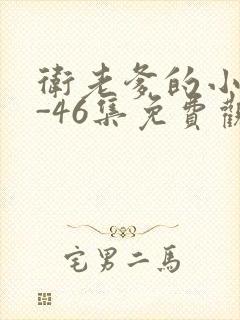 衛老爹的小
-46集免費觀
宅男二馬